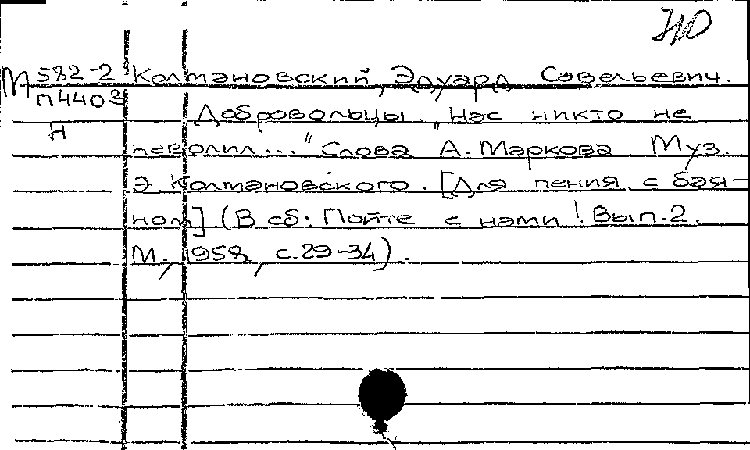 НО
М 582-2 Колмановский, Эдуард Савельевич.
П4403 Добровольцы. "Нас никто не
Н неволил..." Слова А. Маркова Муз.
Э. Колмановского. [Для пения с бая-
ном] (В сб: Пойте с нами! Вып.2.
М., 1958, с.29-34).